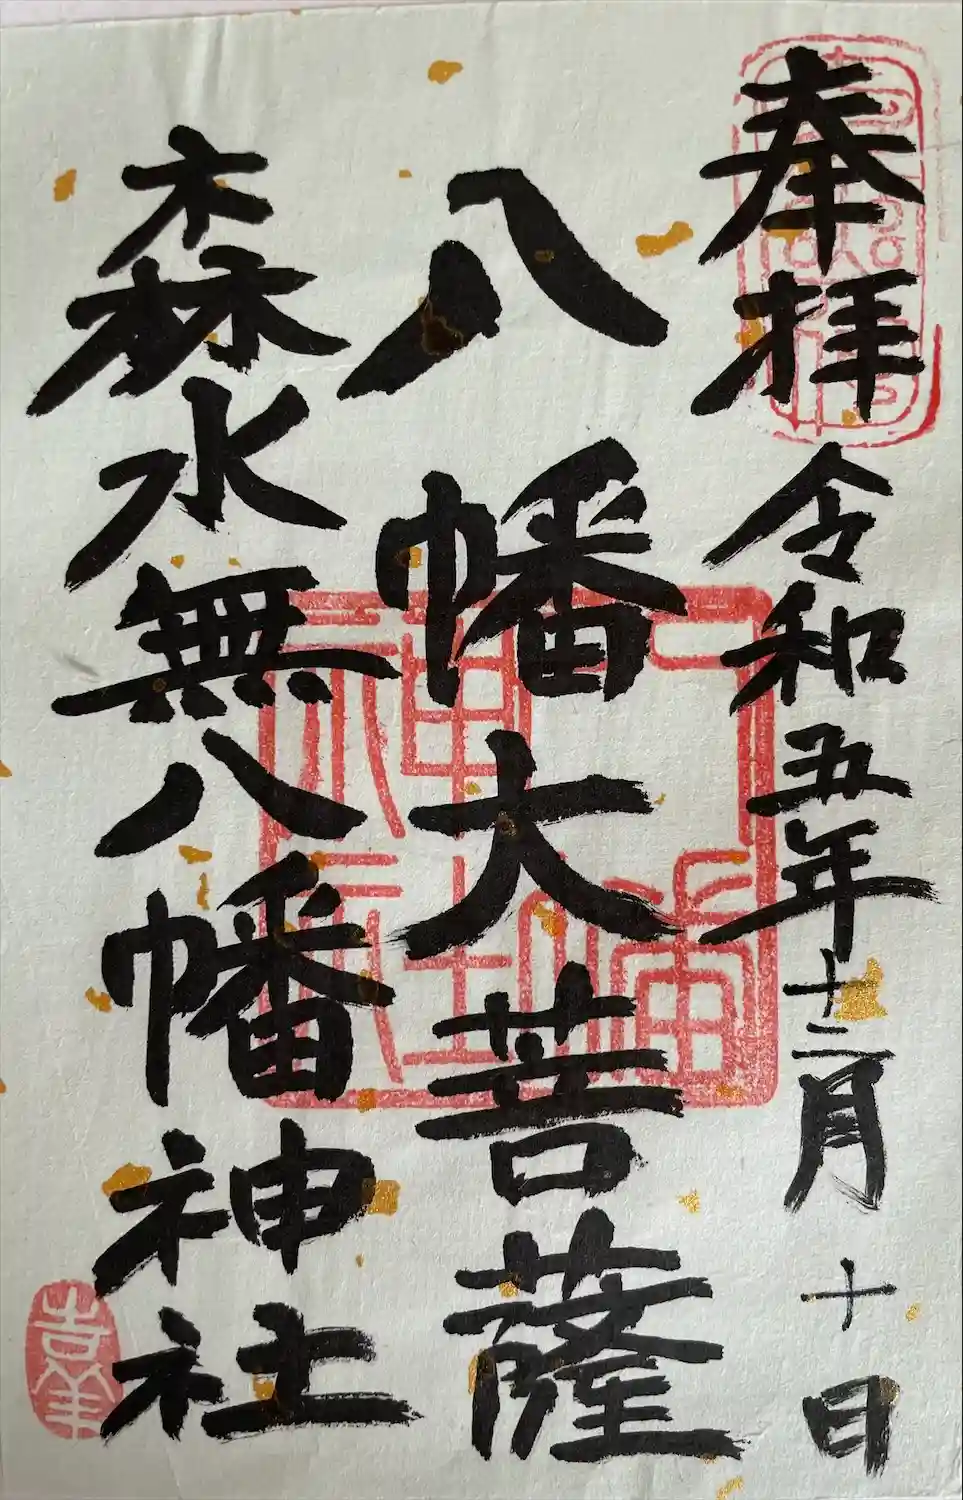 奉拝 令和五年十二月十日
八幡大菩薩
森水無八幡神社
八幡神社